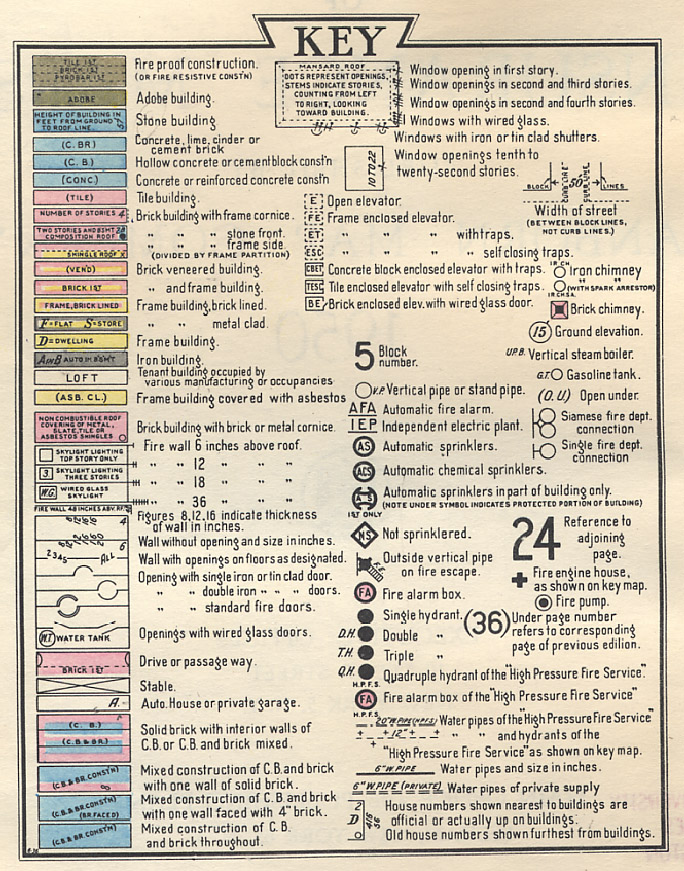 KEY
TILE 1ST
BRICK 1ST
PYROBAR 1ST
Fire proof construction.
(OR FIRE RESISTIVE CONST'N)
ADOBE
Adobe building.
HEIGHT OF BUILDING IN
FEET FROM GROUND
TO ROOF LINE.
Stone building
(C. BR)
Concrete, lime, cinder or
cement brick
(C. B.)
Hollow concrete or cement block const'n
(CONC.)
Concrete or reinforced concrete const'n
(TILE)
Tile building.
NUMBER OF STORIES 4
Brick building with frame cornice.
TWO STORIES AND BSMT 2B
COMPOSITION ROOF
" " " stone front.
" " " frame side
SHINGLE ROOF X
(DIVIDED BY FRAME PARTITION)
(VEN'D)
Brick veneered building.
BRICK 1ST
" and frame building.
FRAME, BRICK LINED
Frame building, brick lined.
F=FLAT S=STORE
" " metal clad.
D=DWELLING
Frame building.
A IN B AUTO IN BSM'T
Iron building.
LOFT
Tenant building occupied by
various manufacturing or occupancies
(ASB. CL.)
Frame building covered with asbestos
NON COMBUSTIBLE ROOF
COVERING OF METAL,
SLATE, TILE OR
ASBESTOS SHINGLES
Brick building with brick or metal cornice.
SKYLIGHT LIGHTING
TOP STORY ONLY
Fire wall 6 inches above roof.
" " 12 " " "
3 SKYLIGHT LIGHTING
THREE STORIES
" " 18 " " "
W.G. WIRED GLASS
SKYLIGHT
" " 36 " " "
FIRE WALL 48 INCHES ABV. RF.
Figures 8, 12, 16 indicate thickness
of wall in inches.
4
Wall without opening and size in inches.
6
2345 ALL
Wall with openings on floors as designated.
Opening with single iron or tin clad door.
" " double iron " " doors.
" " standard fire doors.
W.T. WATER TANK
Openings with wired glass doors.
BRICK 1ST
Drive or passage way.
Stable.
A.
Auto. House or private garage.
(C. B.)
(C.B.& BR.)
Solid brick with interior walls of
C.B. or C.B. and brick mixed.
(C.B.& BR. CONST'N)
Mixed construction of C.B. and brick
with one wall of solid brick.
(C.B.& BR. CONST'N)
(BR. FACED)
Mixed construction of C.B. and brick
with one wall faced with 4" brick.
(C.B.& BR. CONST'N)
Mixed construction of C. B.
and brick throughout.
MANSARD ROOF
DOTS REPRESENT OPENINGS,
STEMS INDICATE STORIES,
COUNTING FROM LEFT
TO RIGHT, LOOKING
TOWARD BUILDING.
Window opening in first story.
Window openings in second and third stories.
Window openings in second and fourth stories.
Windows with wired glass.
Windows with iron or tin clad shutters.
10 TO 22
Window openings tenth to
twenty-second stories.
BLOCK CURB LINE 50' CURB LINE LINES
Width of street
(BETWEEN BLOCK LINES,
NOT CURB LINES.)
E Open elevator.
FE Frame enclosed elevator.
ET " " " with traps.
ESC " " " self closing traps.
CBET Concrete block enclosed elevator with traps.
TESC Tile enclosed elevator with self closing traps.
BE Brick enclosed elev. with wired glass door.
IR. CH.
Iron chimney
(WITH SPARK ARRESTOR)
IR. CH S.A.
Brick chimney.
15 Ground elevation.
5 Block
number.
U.P.B. Vertical steam boiler.
G.T. Gasoline tank.
V.P. Vertical pipe or stand pipe.
(O.U.) Open under.
AFA Automatic fire alarm.
IEP Independent electric plant.
Siamese fire dept.
connection
AS Automatic sprinklers.
Single fire dept.
connection
ACS Automatic chemical sprinklers.
AS
1ST ONLY
Automatic sprinklers in part of building only.
(NOTE UNDER SYMBOL INDICATES PROTECTED PORTION OF BUILDING)
NS Not sprinklered.
24 Reference to
adjoining
page.
F.E.
Outside vertical pipe
on fire escape.
Fire engine house,
as shown on key map.
FA Fire alarm box.
Fire pump.
Single hydrant.
D.H. Double "
T.H. Triple "
(36) Under page number
refers to corresponding
page of previous edition.
Q.H. Quadruple hydrant of the "High Pressure Fire Service".
H.P.F.S.
FA Fire alarm box of the "High Pressure Fire Service"
H.P.F.S
20" W. PIPE (H.P.F.S.) Water pipes of the "High Pressure Fire Service"
12" " " and hydrants of the
"High Pressure Fire Service" as shown on key map.
6" W. PIPE Water pipes and size in inches.
6" W. PIPE (PRIVATE) Water pipes of private supply
2
D
O
House numbers shown nearest to buildings are
official or actually up on buildings.
Old house numbers shown furthest from buildings.